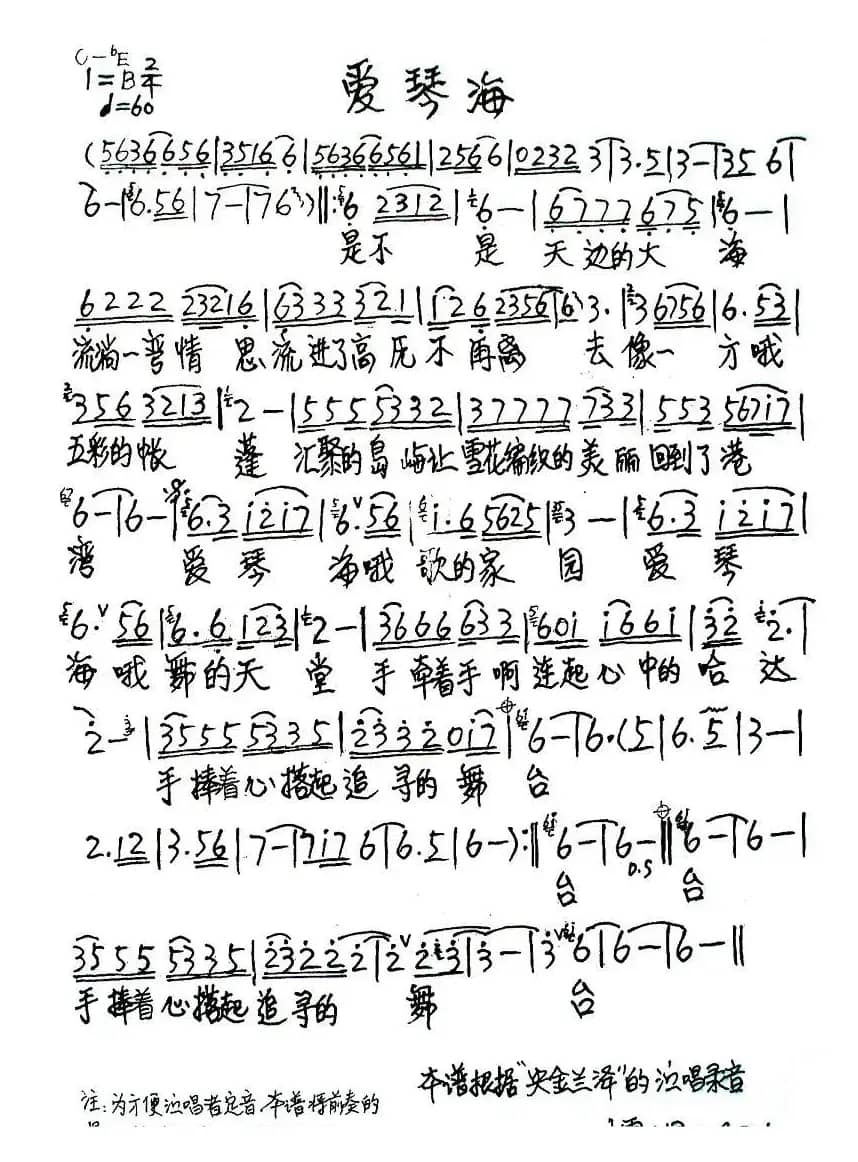 C-bE
1=B 2/4
♩=60
爱琴海
(56366656|35166|563666561|2566|0232 3|3.5|3-|35 6|
6-|6.56|7-|76)‖:6 2312|6-|6777 675|6-|
是不 是 天边的大 海
6222 23216|63333 321|126 2356|6 3.|3 6756|6.53|
流淌一弯情 思流进了高 不再离 去像一 方哦
3356 3213|2-|555 5332|37777 733|553 56717|
五彩的帐 蓬 汇聚的岛 屿让雪花编织的美 丽回到了港
6-|6-|6.3 i2i7|6.56|i.6 5625|3-|6.3 i2i7|
湾 爱琴 海哦 歌的家 园 爱琴
6. 56|6.6 123|2-|3666 633|60i i66i|32 2.|
海哦 舞的天 堂 手牵着手 啊连起心中的哈达
2-|3555 5335|2332 0i7|6-|6.(5|6.5|3-|
手捧着心搭起追寻的 舞 台
2.12|3.56|7-|7i7 6|6.5|6-):‖6-|6-‖6-|6-|
0.5
台 台
3555 5335|23222|2 23|3-|3 6|6-|6-‖
手捧着心搭起追寻的 舞 台
本谱根据"央金兰泽"的演唱录音
注:为方便演唱者定音,本谱将前奏的